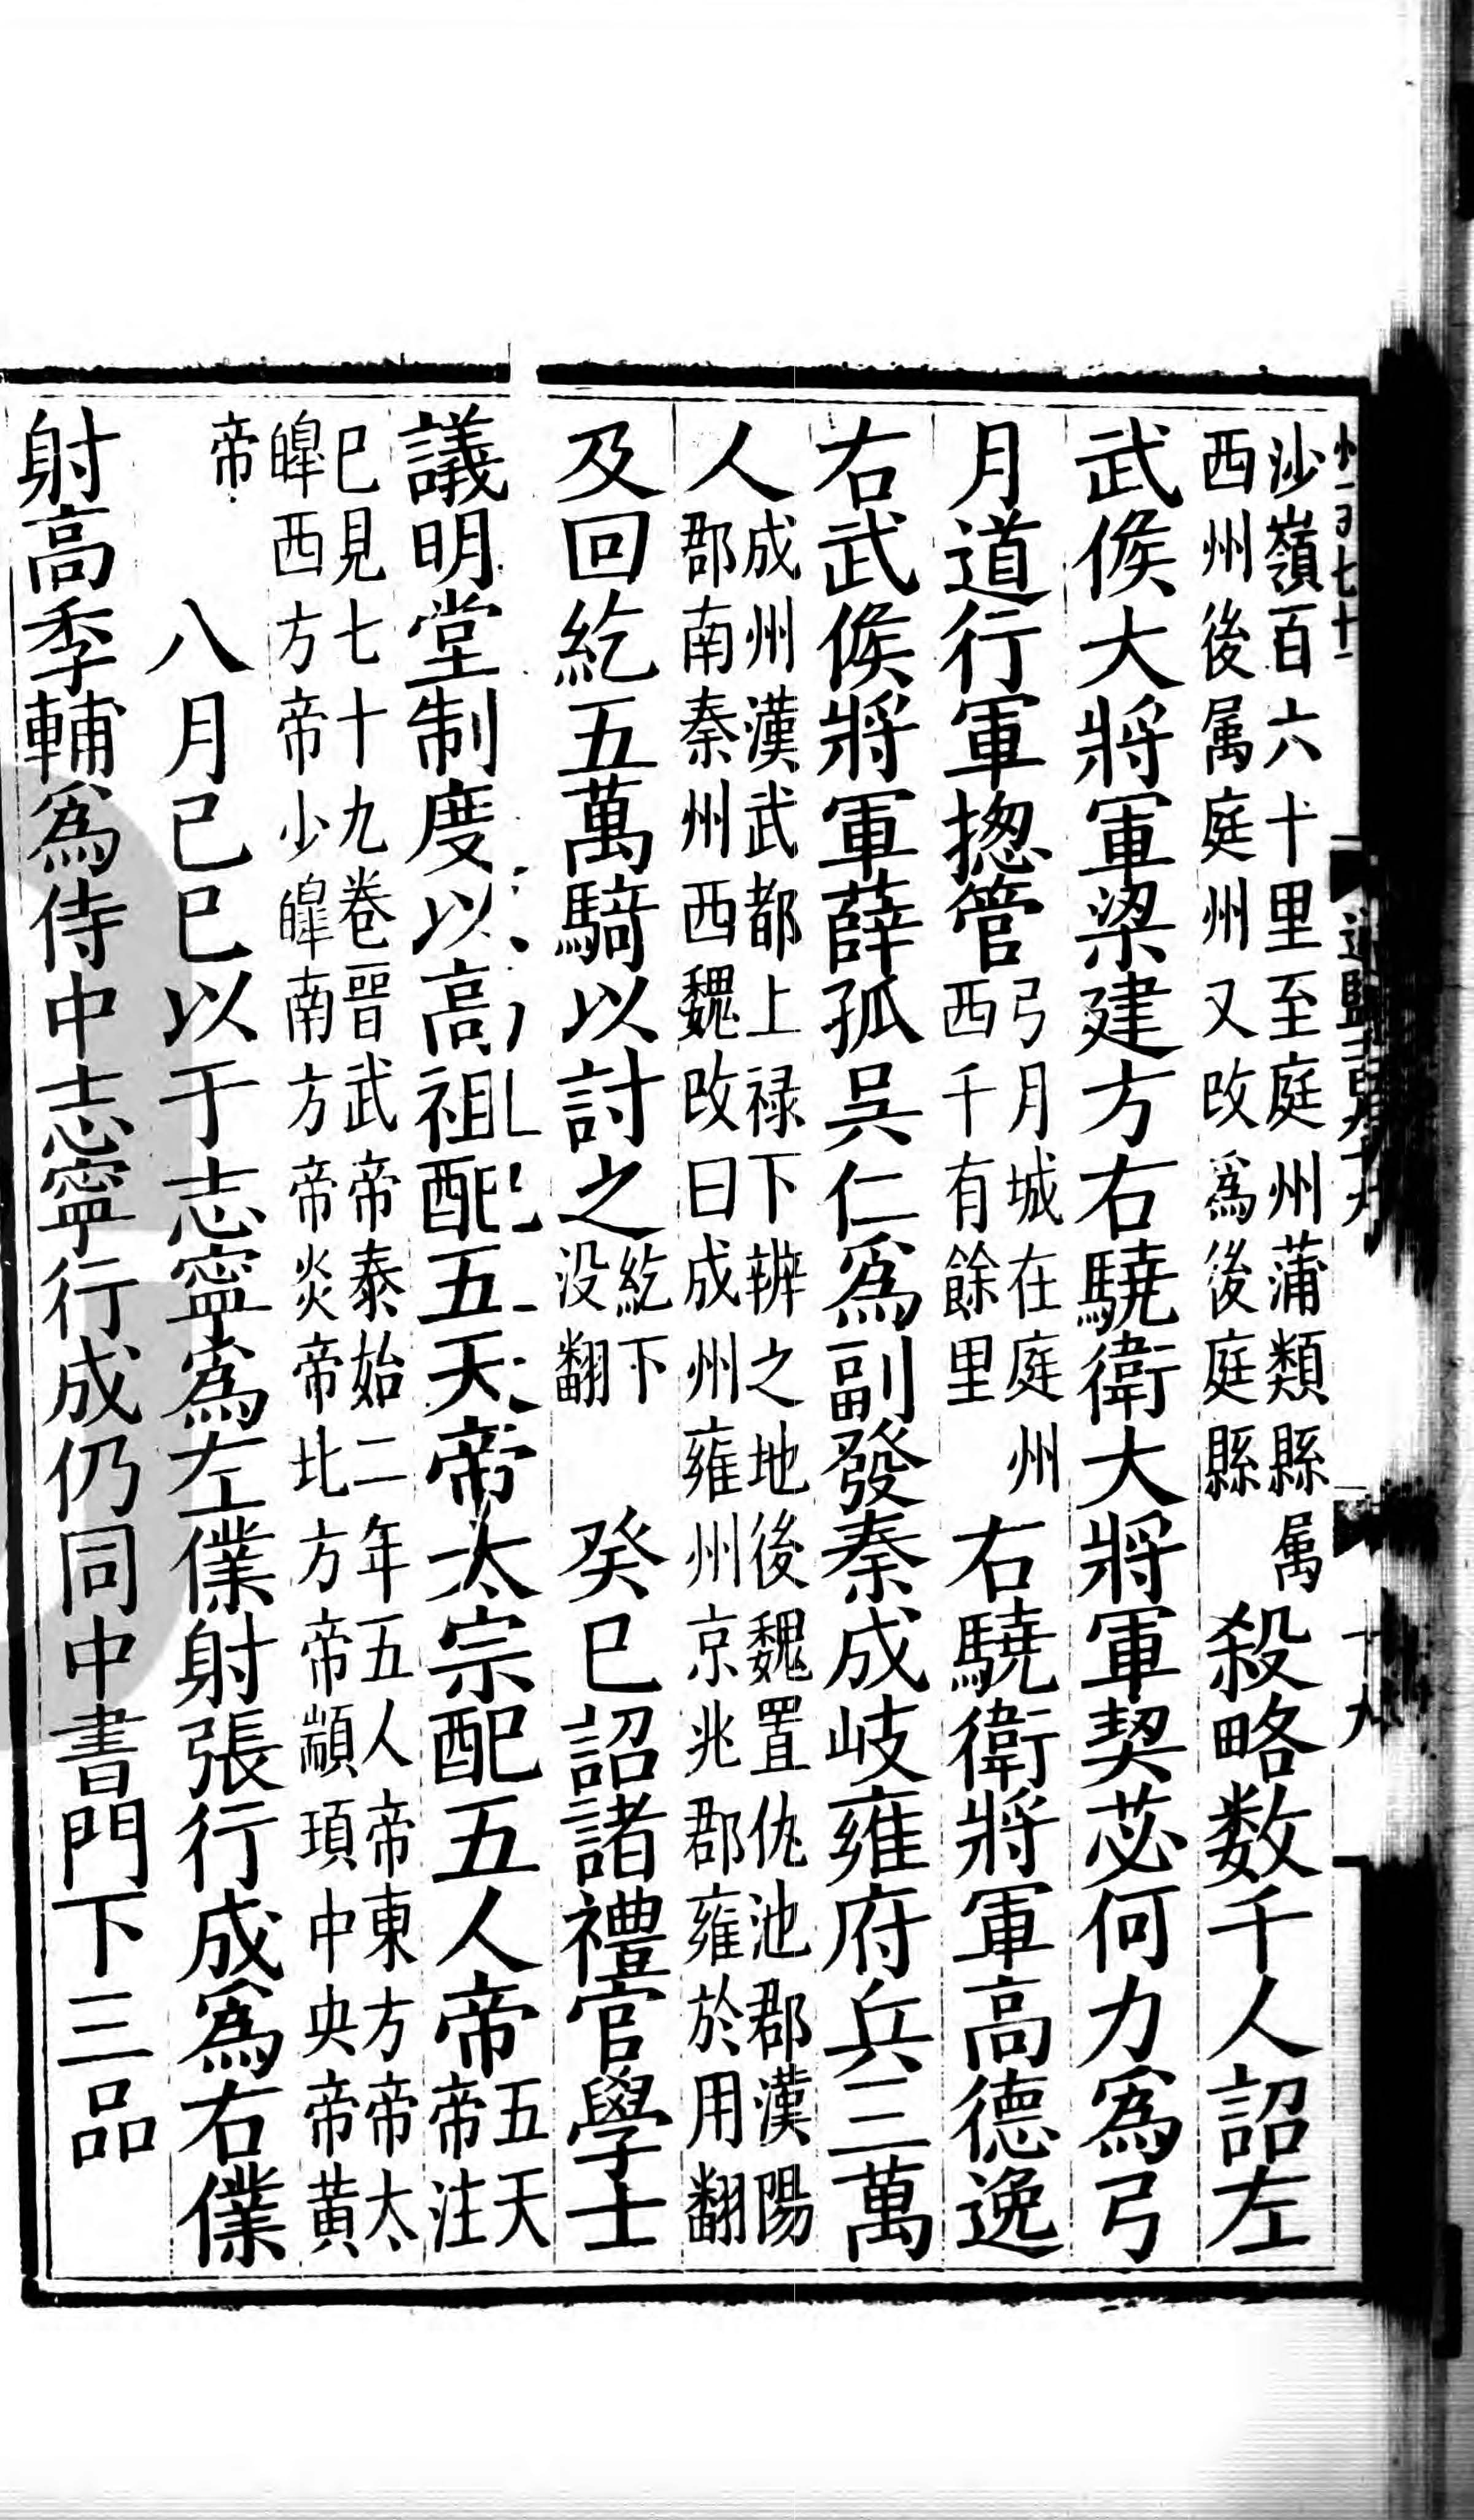 沙嶺百六十里至庭州蒲類縣属
西州後属庭州又改爲後庭縣
殺略数千人詔左
武候大將軍梁建方右驍衛大將軍契苾何力爲弓
月道行軍揔管
弓月城在庭州
西千有餘里
右驍衛將軍高德逸
右武候將軍薛孤吳仁爲副發秦成岐雍府兵三萬
人
成州漢武都上禄下辨之地後魏置仇池郡漢陽
郡南秦州西魏改曰成州雍州京兆郡雍於用翻
及回紇五萬騎以討之
紇下
没翻
癸巳詔諸禮官學士
議明堂制度以高祖配五天帝太宗配五人帝
五天
帝注
已見七十九卷晉武帝泰始二年五人帝東方帝太
皥西方帝少皥南方帝炎帝北方帝顓頊中央帝黄
帝
八月己巳以于志寧爲左僕射張行成爲右僕
射高季輔爲侍中志寧行成仍同中書門下三品
十九